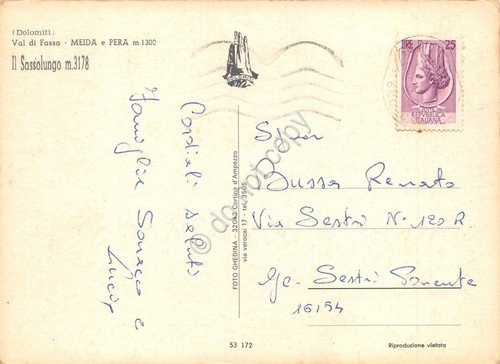 (Dolomiti)
Val di Fassa - MEIDA e PERA m.1300
Il Sassolungo m.3178
LIRE 25
REPVBBLICA
ITALIANA
Cordiali saluti
Famiglia
e
FOTO GHEDINA - 32043 Cortina d'Ampezzo
via verocai 17 - tel.
do not copy
Bussa Renato
Via Sestri N° 120 R.
Ge. Sestri Ponente
16154
53 172
Riproduzione vietata